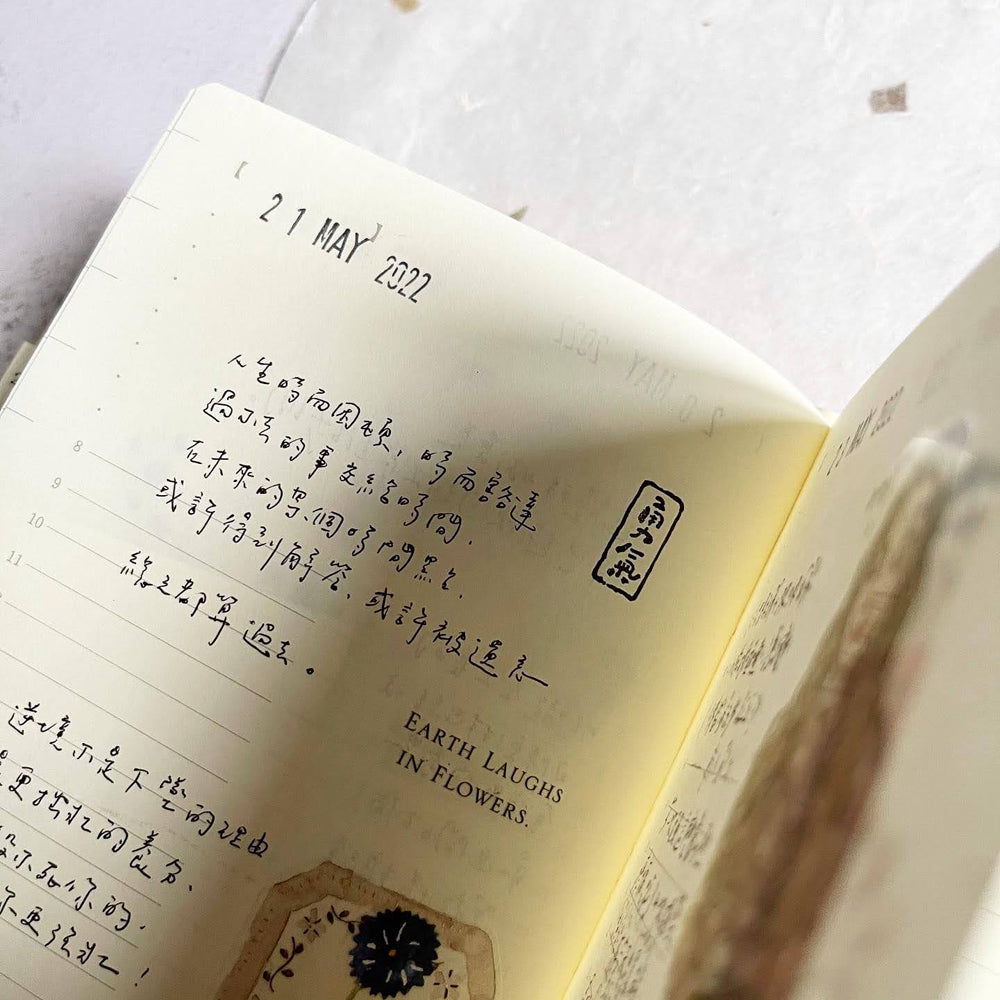 21 MAY 2022
人生時而困頓，時而豁達
過不去的事交給時間，
在未來的某個時間點，
或許得到解答、或許被遺忘
總之都算過去。
勇氣
8
9
10
11
EARTH LAUGHS
IN FLOWERS.
逆境不是下墜的理由
是更茁壯的養分、
殺不死你的，
你更強壯！